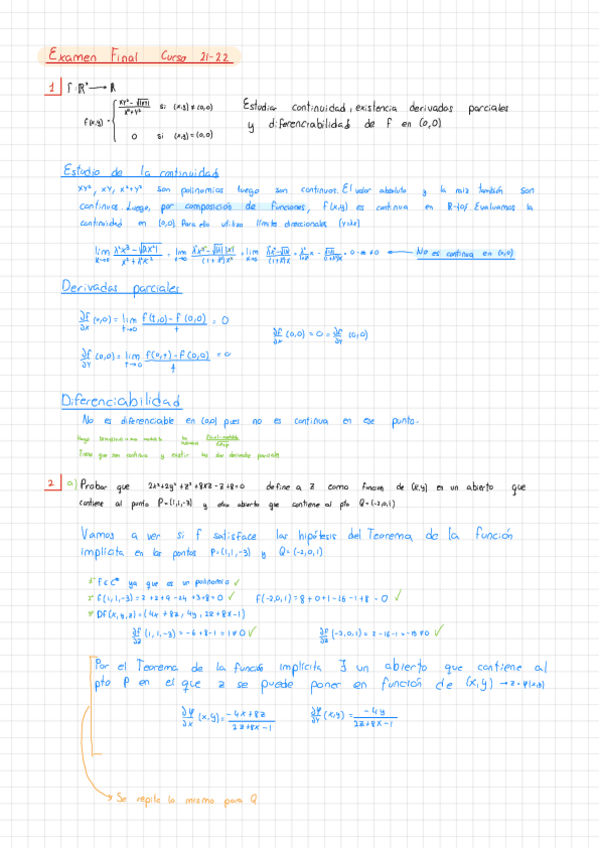 Examen Final Curso 21-22
1 f: R² → R
f(x,y) = { (xy² - √|xy|)/(x²+y²) si (x,y) ≠ (0,0)
0 si (x,y) = (0,0)
Estudiar continuidad, existencia derivadas parciales
y diferenciabilidad de f en (0,0)
Estudio de la continuidad
xy², xy, x²+y² son polinomios luego son continuos. El valor absoluto y la raiz también son
continuos. Luego, por composición de funciones, f(x,y) es continua en R-{0}. Evaluamos la
continuidad en (0,0). Para ello utilizo límites direccionales (y=λx)
No es continua en (0,0)
Derivadas parciales
∂f/∂x (0,0) = lim t→0 (f(t,0) - f(0,0))/t = 0
∂f/∂x (0,0) = 0 = ∂f/∂y (0,0)
∂f/∂y (0,0) = lim t→0 (f(0,t) - f(0,0))/t = 0
Diferenciabilidad
No es diferenciable en (0,0) pues no es continua en ese punto.
Tiene que ser continua y existir las dos derivadas parciales
2 a) Probar que 2x²+2y²+z²+8xz-z+8=0 define a z como función de (x,y) en un abierto que
contiene al punto P=(1,1,-3) y otro abierto que contiene al pto Q=(-2,0,1)
Vamos a ver si f satisface las hipótesis del Teorema de la función
implícita en los puntos P=(1,1,-3) y Q=(-2,0,1)
1º f∈C^∞ ya que es un polinomio ✓
2º f(1,1,-3) = 2+2+9-24+3+8=0 ✓ f(-2,0,1)=8+0+1-16-1+8=0 ✓
3º Df(x,y,z)=(4x+8z, 4y, 2z+8x-1)
∂f/∂z (1,1,-3) = -6+8-1=1≠0 ✓ ∂f/∂z (-2,0,1) = 2-16-1=-15≠0 ✓
Por el Teorema de la función implícita ∃ un abierto que contiene al
pto P en el que z se puede poner en función de (x,y) → z=φ(x,y)
∂φ/∂x (x,y) = (-4x+8z)/(2z+8x-1) ∂φ/∂y (x,y) = (-4y)/(2z+8x-1)
Se repite lo mismo para Q